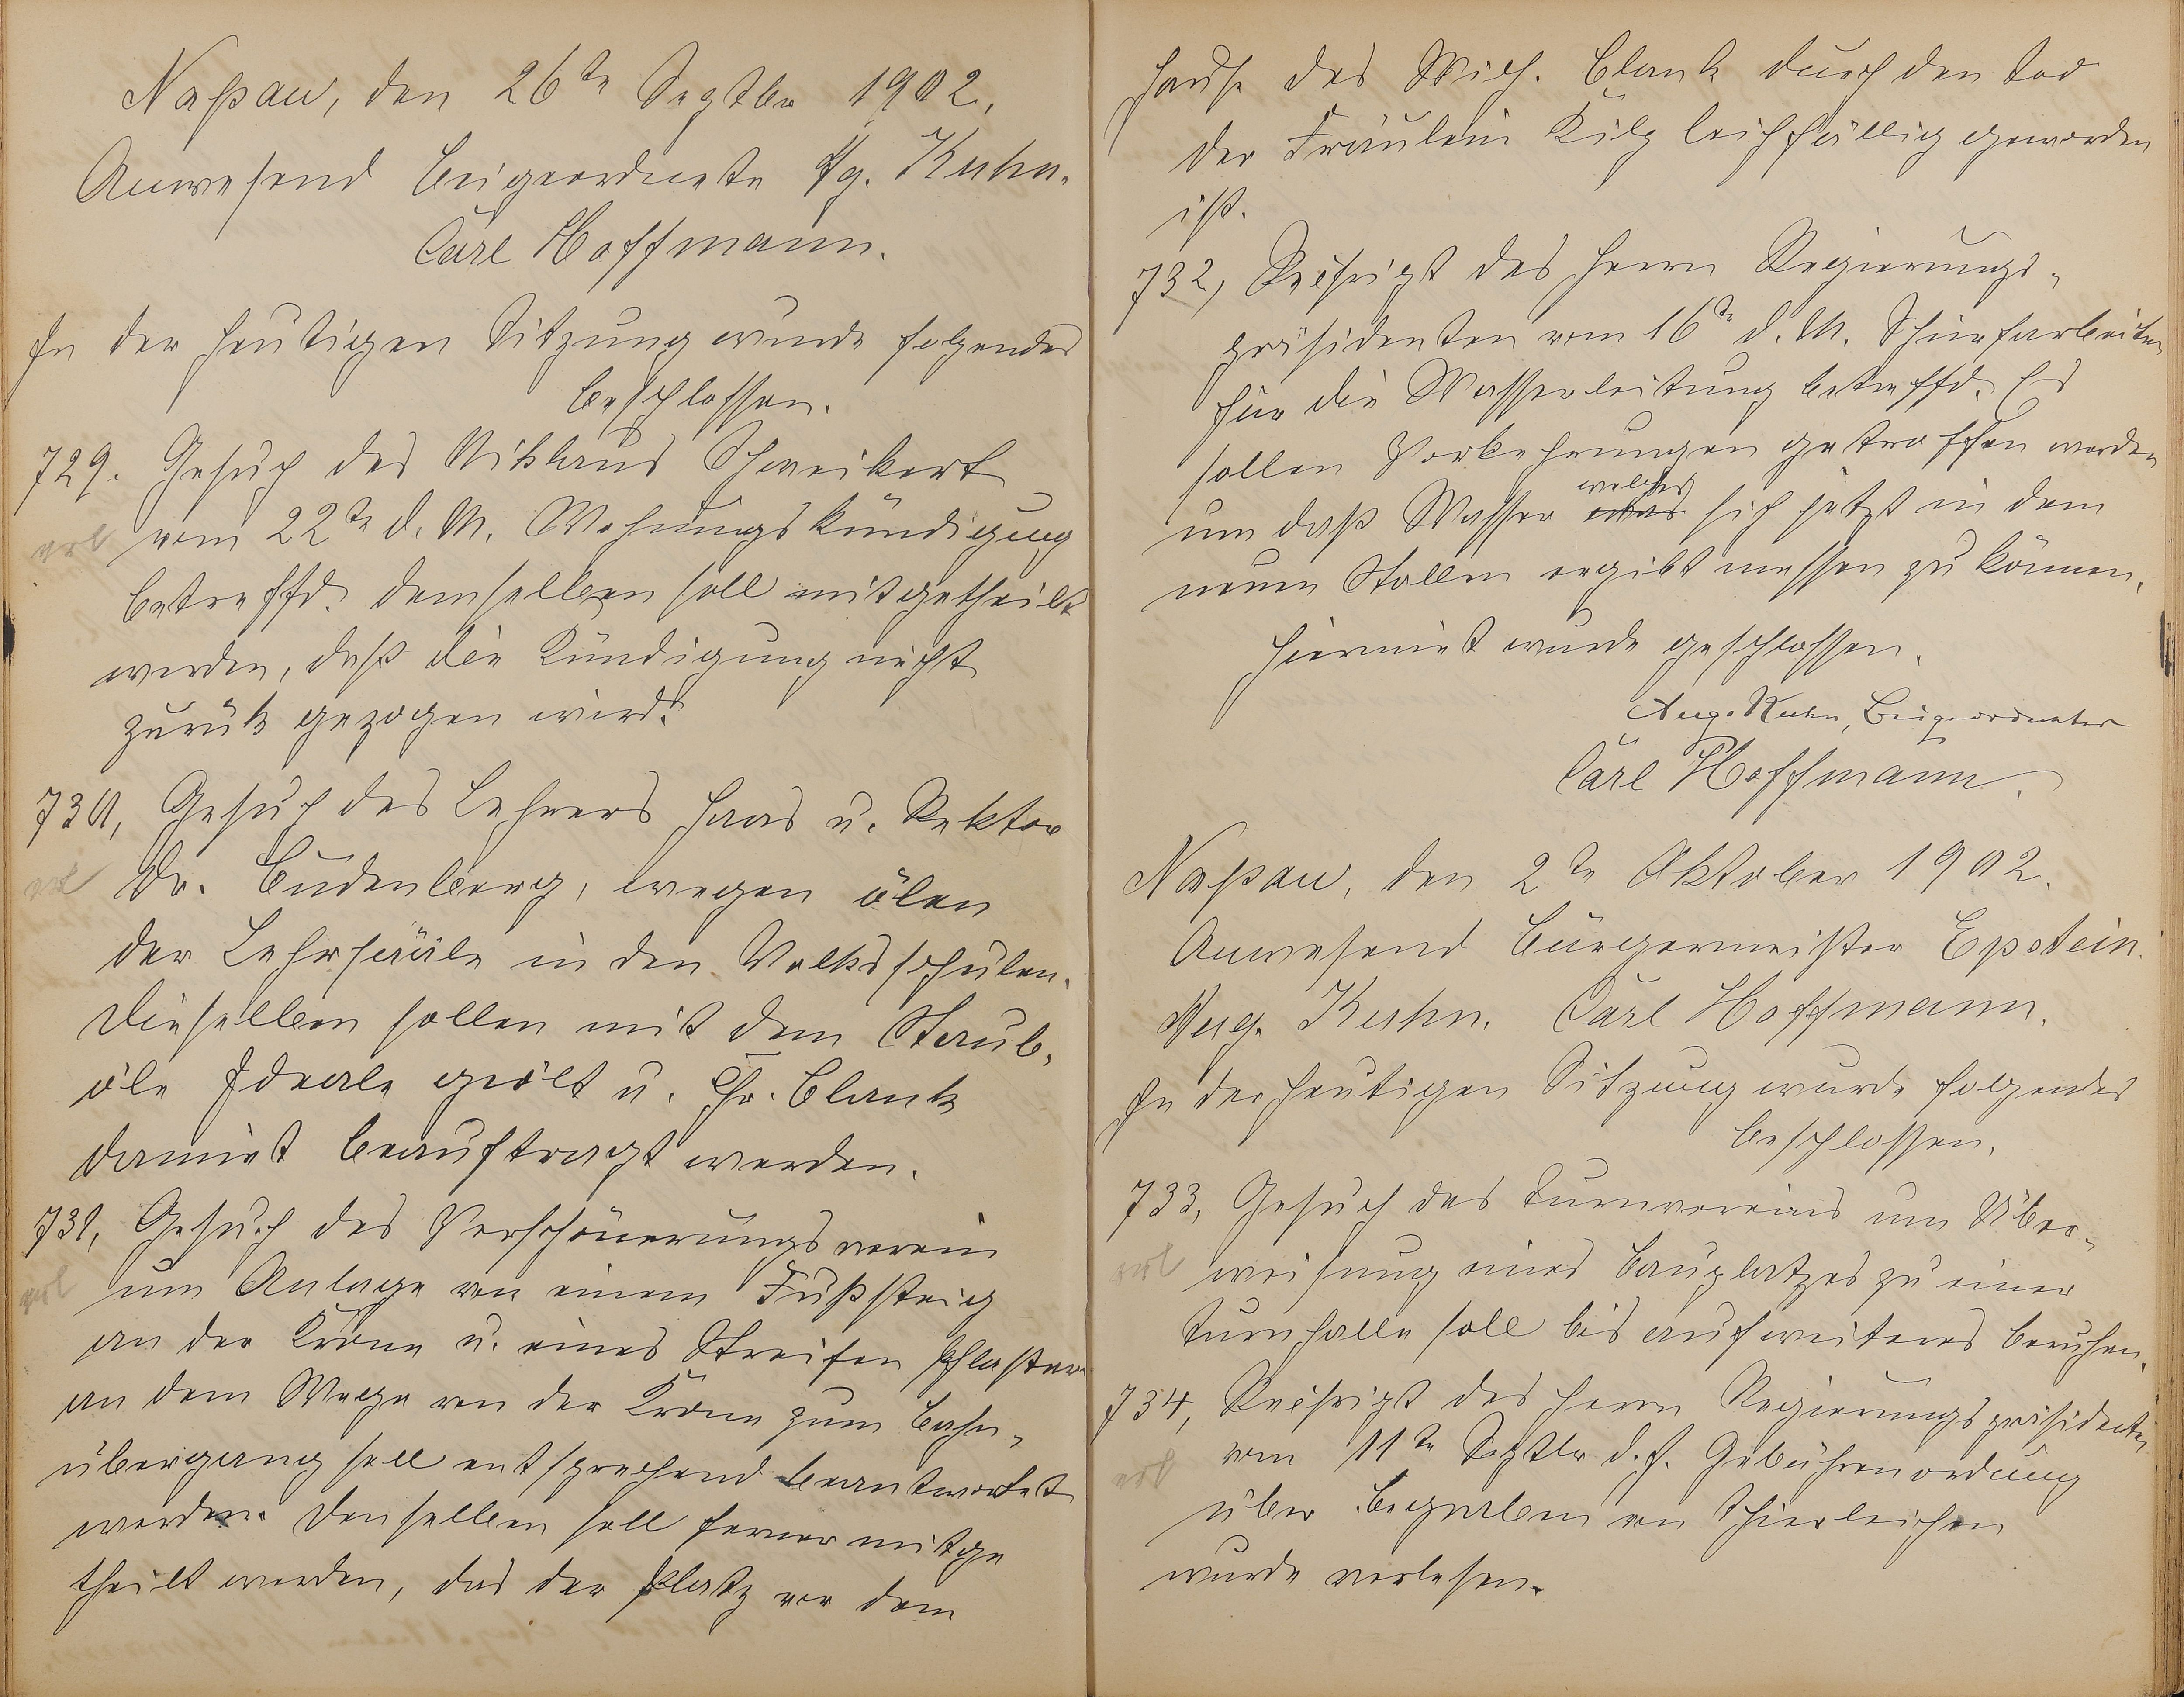 Naßau, den 26te Septbr 1902.
Anwesend Beigeordnete Ag. Kuhn.
Carl Hoffmann.
In der heutigen Sitzung wurde folgendes
beschlossen.
729. Gesuch des Niklaus Schweikert
erl vom 22te d. M. Wohnungskündigung
betreffd. demselben soll mitgetheilt
werden, daß die Kündigung nicht
zurük gezogen wird.
730, Gesuch des Lehrers Haas u. Rektor
erl Dr. Budenberg, wegen ölen
der Lehrsääle in den Volksschulen.
Dieselben sollen mit dem Staub-
öle Ideale geölt u. Chr. Blank
damiet beauftragt werden.
731, Gesuch des Verschönerungsverein
erl um Anlage von einem Fußsteig
an der Krone u. eines Streifen Pflaster
an dem Wege von der Krone zum Bahn-
übergang soll entsprechend beantwortet
werden. Denselben soll ferner mitge
theilt werden, das der Platz vor dem
Hause des Wilh. Blank durch den Tod
der Fräulein Kilp leihfällig geworden
ist.
732, Reskript des Herrn Regierungs-
präsidenten vom 16te d. M. Schürfarbeiten
für die Wasserleitung betreffd. Es
sollen Vorkehrungen getroffen werden
welches
um daß Wasser sich jetzt in dem
neuen Stollen ergibt messen zu können.
Hiermiet wurde geschlossen.
Aug. Kuhn, Beigeordneter
Carl Hoffmann.
Naßau, den 2te Oktober 1902.
Anwesend Bürgermeister Epstein.
Aug. Kuhn. Carl Hoffmann.
In der heutigen Sitzung wurde folgendes
beschlossen.
733, Gesuch des Turnvereins um Über-
erl weisung eines Bauplatzes zu einer
Turnhalle soll bis auf weiteres beruhen.
734, Reskript des Herrn Regierungspräsidenten
erl vom 11te Septbr d. J. Gebührenordnung
über Begraben von Thierleichen
wurde verlesen.